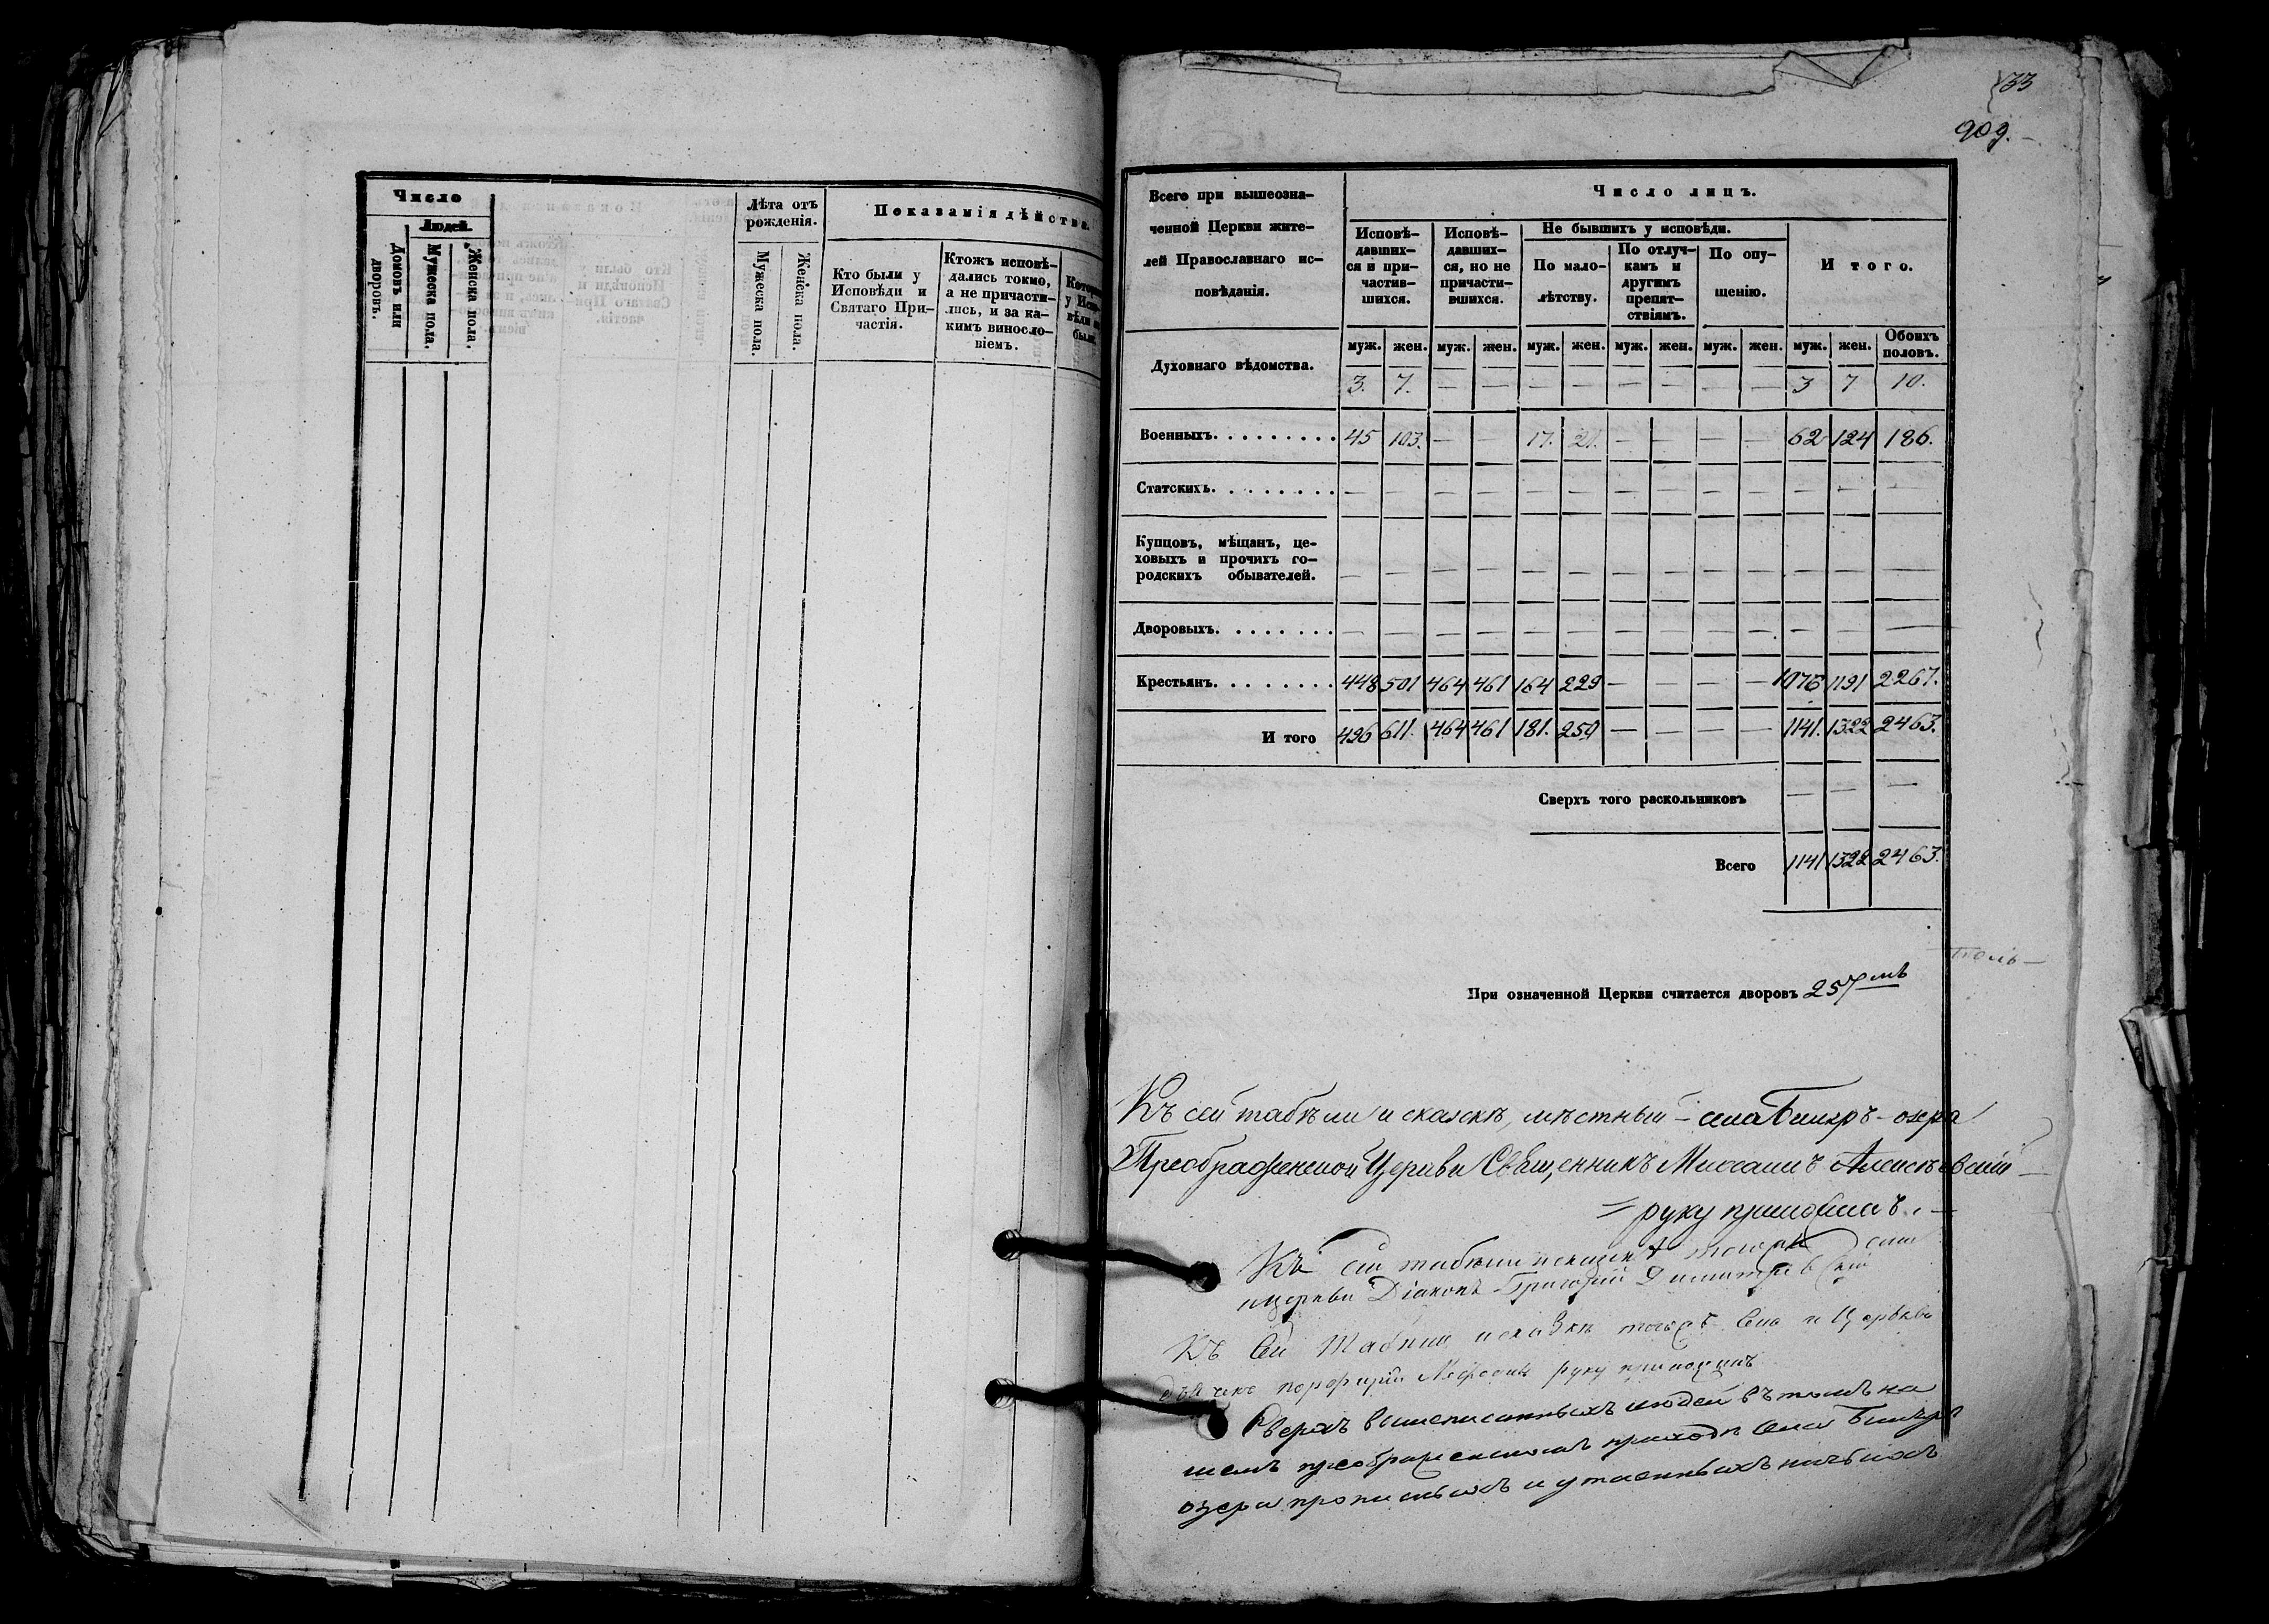 33
909.
Число
Людей.
Домовъ или дворовъ.
Мужеска пола.
Женска пола.
Лѣта отъ рожденія.
Мужеска пола.
Женска пола.
Показанія дѣйства.
Кто были у
Исповѣди и
Святаго При-
частія.
Ктожъ исповѣ-
дались токмо,
а не причасти-
лись, и за ка-
кимъ винослo-
віемъ.
у Испо-
вѣди не
были.
Всего при вышеозна-
ченной Церкви жите-
лей Православнаго ис-
повѣданія.
Число лицъ.
Исповѣ-
давших-
ся и при-
частив-
шихся.
Исповѣ-
давших-
ся, но не
причасти-
вшихся.
Не бывшихъ у исповѣди.
По мало-
лѣтству.
По отлуч-
камъ и
другимъ
препят-
ствіямъ.
По опу-
щенію.
И того.
муж. жен. муж. жен. муж. жен. муж. жен. муж. жен. муж. жен. Обоихъ половъ.
Духовнаго вѣдомства. 3. 7. — — — — — — — — 3 7 10.
Военныхъ. 45 103. — — 17. 21. — — — — 62 124 186.
Статскихъ. — — — — — — — — — — — — —
Купцовъ, мѣщанъ, це-
ховыхъ и прочихъ го-
родскихъ обывателей. — — — — — — — — — — — — —
Дворовыхъ. — — — — — — — — — — — — —
Крестьянъ. 448 501 464 461 164 229 — — — — 1076 1191 2267.
И того 496 611. 464 461 181. 250 — — — — 1141. 1322 2463.
Сверхъ того раскольниковъ — — —
Всего 1141 1322 2463.
При означенной Церкви считается дворовъ 257мъ
Къ сей табели и сказкѣ, мѣстный села Билярь-озера
Преображенской Церкви Священникъ Михаилъ Алексѣевскій
руку приложилъ.
Къ сей табели и сказкѣ тогожъ села
церкви Діаконъ Григорій Димитріевскій
Къ сей Табели и сказкѣ тогожъ села и Церкви
дьячекъ Порфирій руку приложилъ
Сверхъ вышеписанныхъ людей въ томъ на
шемъ преображенскомъ приходѣ села Билярь
озера прописныхъ и утаенныхъ